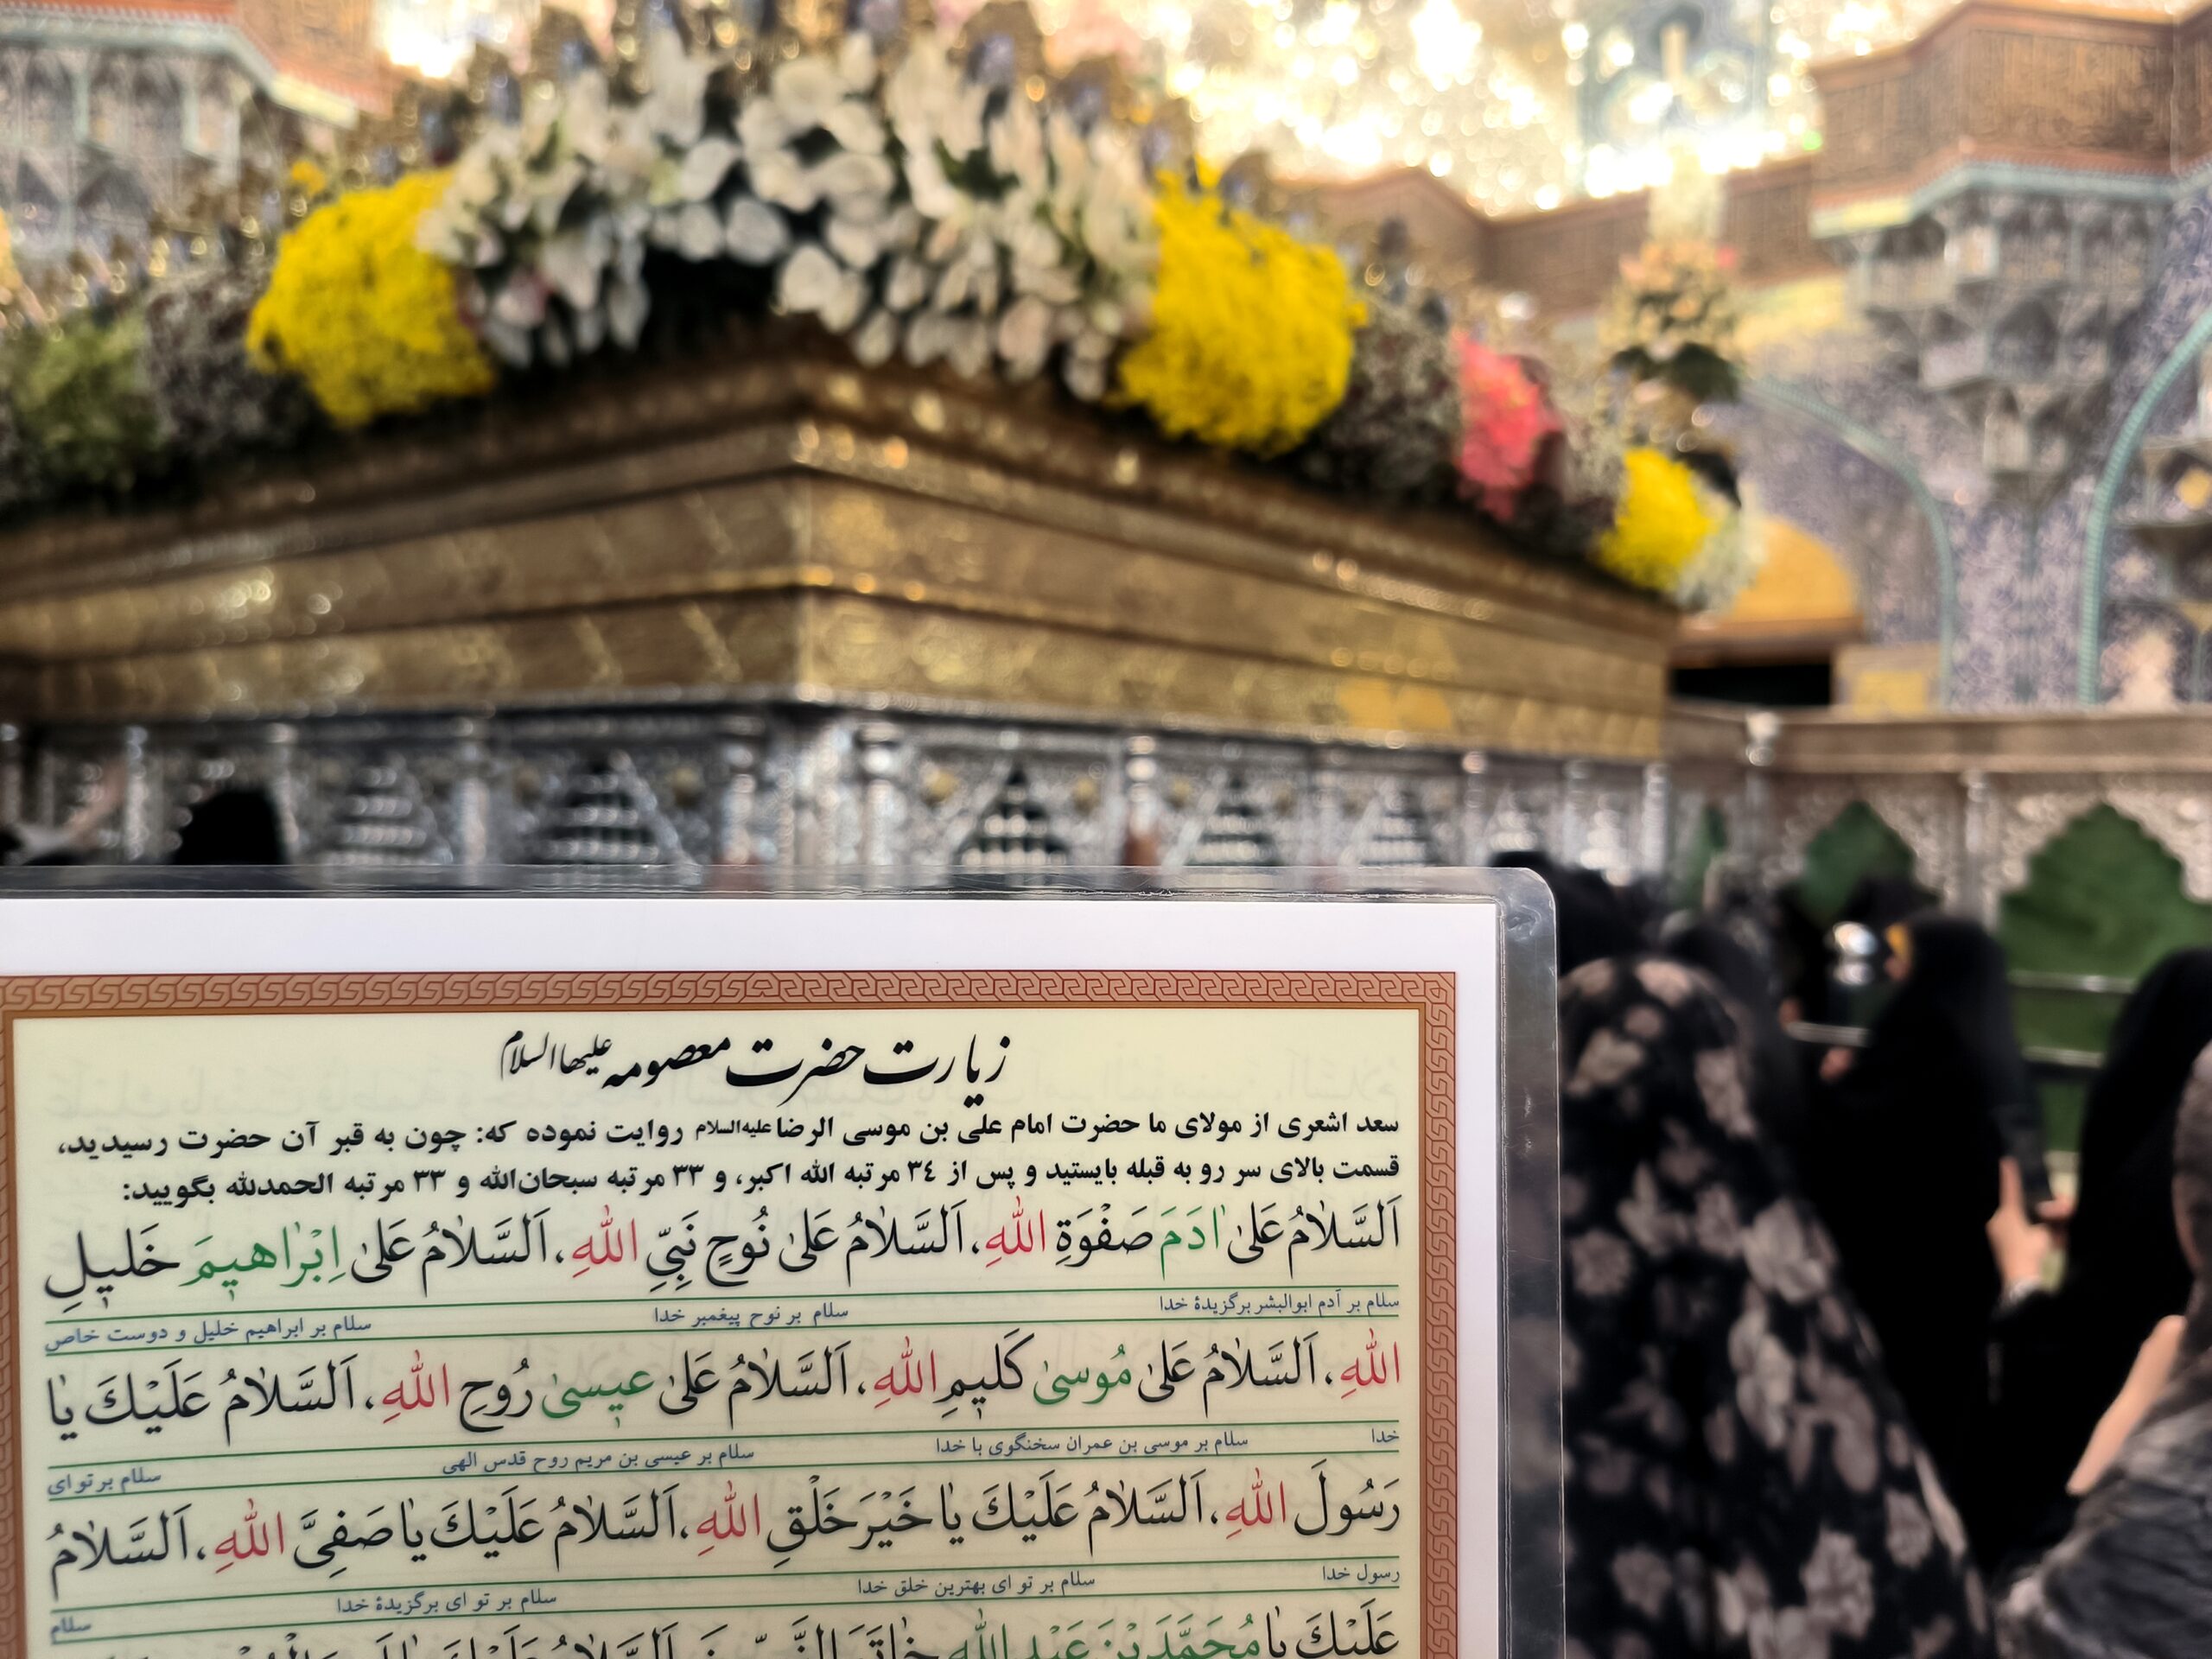 زیارت حضرت معصومه علیهاالسلام
سعد اشعری از مولای ما حضرت امام علی بن موسی الرضا علیه‌السلام روایت نموده که: چون به قبر آن حضرت رسیدید،
قسمت بالای سر رو به قبله بایستید و پس از ٣٤ مرتبه الله اکبر، و ٣٣ مرتبه سبحان‌الله و ٣٣ مرتبه الحمدلله بگویید:
اَلسَّلامُ عَلیٰ ادَمَ صَفْوَةِ اللهِ، اَلسَّلامُ عَلیٰ نُوحٍ نَبِیِّ اللهِ، اَلسَّلامُ عَلیٰ اِبْراهیمَ خَلیلِ
سلام بر آدم ابوالبشر برگزیدهٔ خدا سلام بر نوح پیغمبر خدا سلام بر ابراهیم خلیل و دوست خاص
اللهِ، اَلسَّلامُ عَلیٰ مُوسیٰ کَلیمِ اللهِ، اَلسَّلامُ عَلیٰ عیسیٰ رُوحِ اللهِ، اَلسَّلامُ عَلَیْكَ یا
خدا سلام بر موسی بن عمران سخنگوی با خدا سلام بر عیسی بن مریم روح قدس الهی سلام بر تو ای
رَسُولَ اللهِ، اَلسَّلامُ عَلَیْكَ یا خَیْرَ خَلْقِ اللهِ، اَلسَّلامُ عَلَیْكَ یا صَفِیَّ اللهِ، اَلسَّلامُ
رسول خدا سلام بر تو ای بهترین خلق خدا سلام بر تو ای برگزیدهٔ خدا سلام
عَلَیْكَ یا مُحَمَّدَ بْنَ عَبْدِ اللهِ خاتَمَ النَّبِیّینَ اَلسَّلامُ عَلَیْكَ